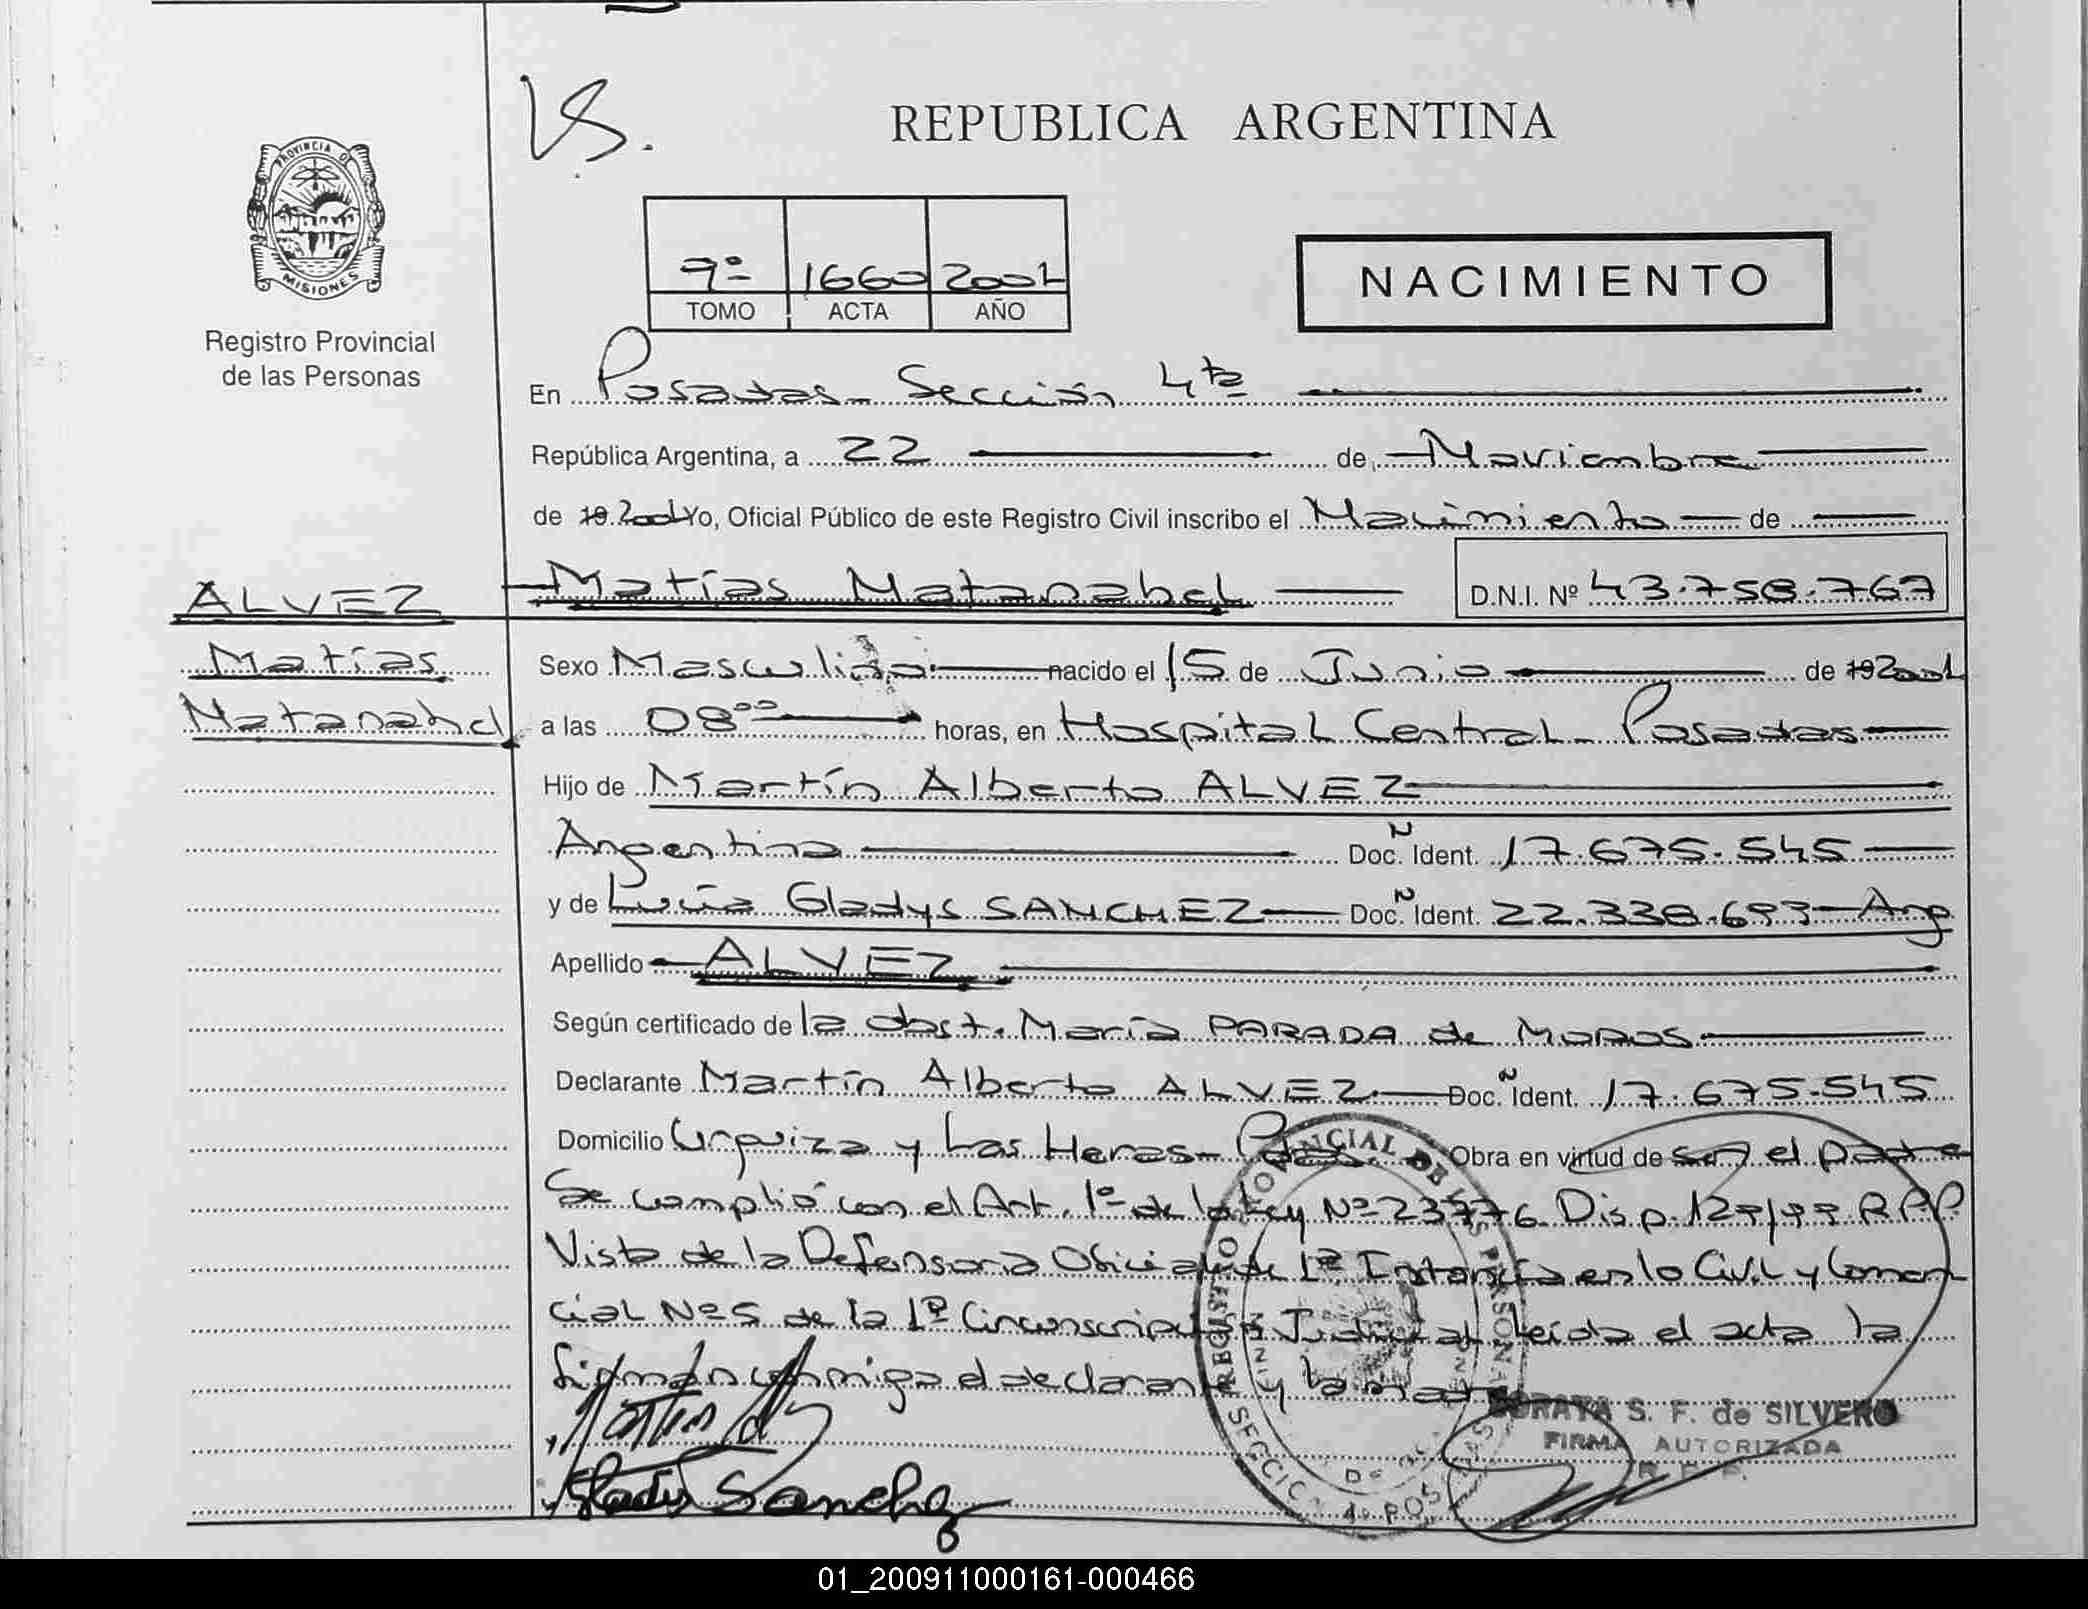 VS.
REPUBLICA ARGENTINA
PROVINCIA DE
MISIONES
Registro Provincial
de las Personas
9º 1660 2001
TOMO ACTA AÑO
NACIMIENTO
En Posadas - Sección 4ta
República Argentina, a 22 de Noviembre
de 19 2001 Yo, Oficial Público de este Registro Civil inscribo el Nacimiento de
ALVEZ
Matías
Natanahel
Matías Natanahel D.N.I. Nº 43.758.767
Sexo Masculino nacido el 15 de Junio de 19 2001
a las 08 00 horas, en Hospital Central - Posadas
Hijo de Martín Alberto ALVEZ
Argentina Doc. Ident. 17.675.545
y de Lucía Gladys SANCHEZ Doc. Ident. 22.338.693 - Arg
Apellido ALVEZ
Según certificado de la obst. María PARADA de
Declarante Martín Alberto ALVEZ Doc. Ident. 17.675.545
Domicilio Urquiza y Las Heras - Pdas. Obra en virtud de ser el padre
Se cumplió con el Art. 1º de la Ley Nº 23776 Disp. 129/99 R.P.P
Vista de la Defensoria Oficial de 1ª Instancia en lo Civil y Comer
cial Nº 5 de la 1ª Circunscripción Judicial. Leida el acta la
firman conmigo el declarante y la madre
Gladys Sanchez
REGISTRO PROVINCIAL DE LAS PERSONAS
SORAYA S. F. de SILVERO
FIRMA AUTORIZADA
R. P. P.
01_200911000161-000466